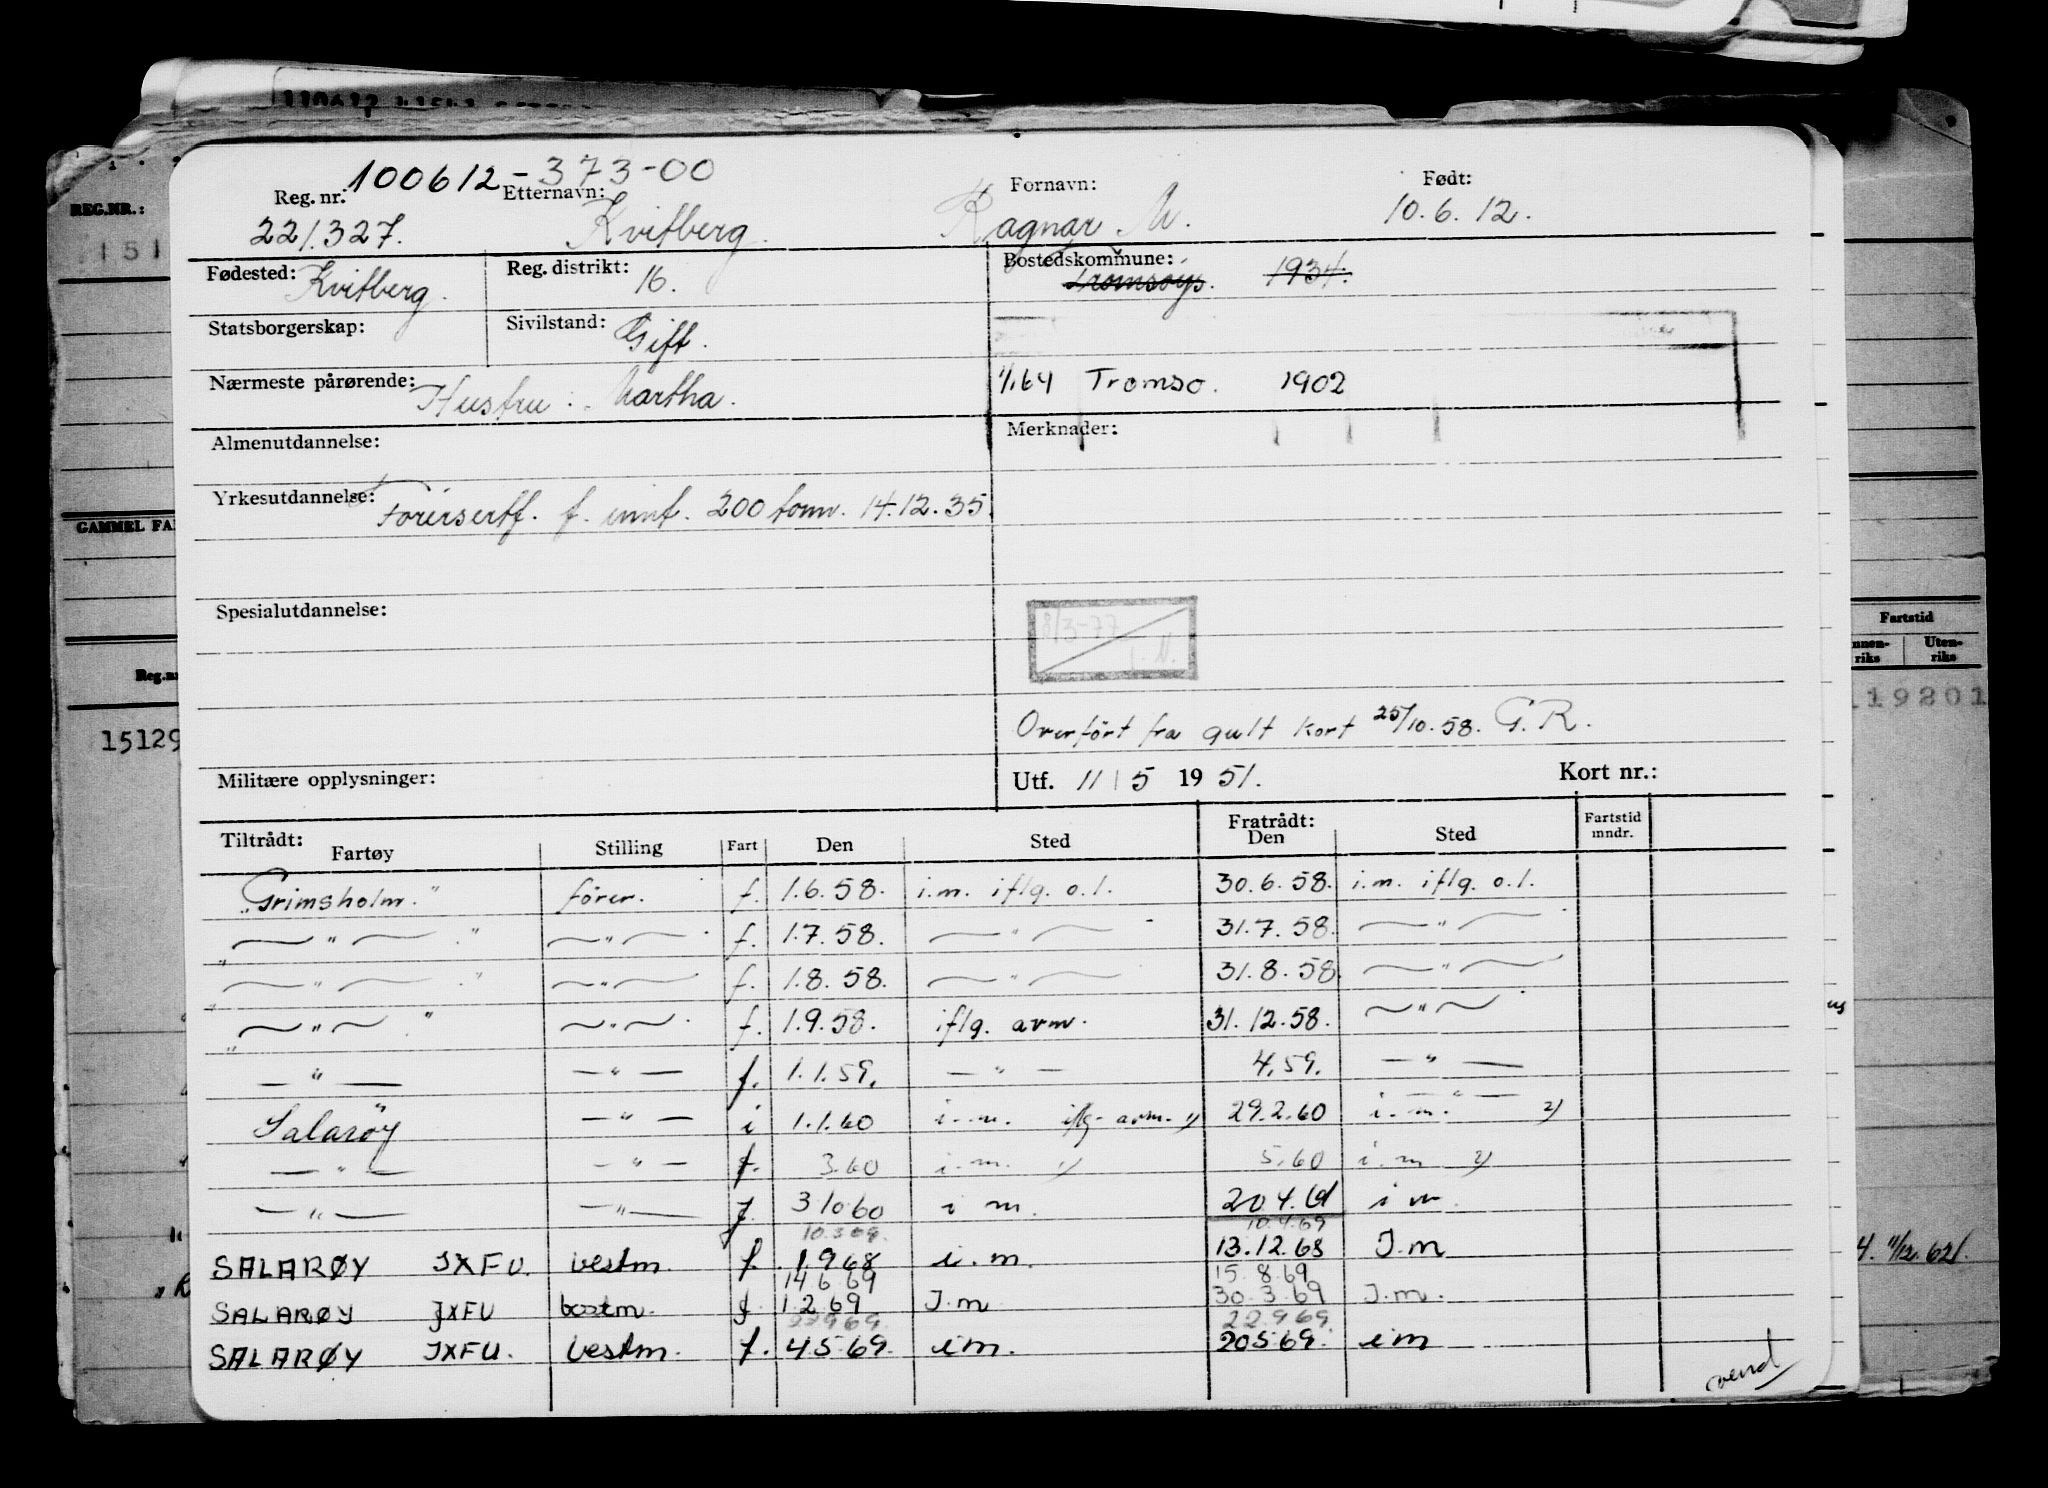 110612
REG.NR.:
151
GAMMEL FA
Reg.nr
15129
100612-373-00
Reg. nr. Etternavn: Fornavn: Født:
221.327. Kvitberg. Ragnar M. 10.6.12.
Fødested: Kvitberg. Reg. distrikt: 16. Bostedskommune: Tromsøys. 1934.
Statsborgerskap: Sivilstand: Gift.
Nærmeste pårørende: Hustru: Martha. 1/1.64 Tromsø. 1902
Almenutdannelse: Merknader:
Yrkesutdannelse: Förersertf. f. innt. 200 tonn. 14.12.35.
Spesialutdannelse:
8/3-77
Overført fra gult kort 25/10.58. G.R.
Militære opplysninger: Utf. 11/5 1951. Kort nr.:
Tiltrådt: Fratrådt: Fartstid mndr.
Fartøy Stilling Fart Den Sted Den Sted
"Grimsholm." fører. f. 1.6.58. i.m. iflg. o.l. 30.6.58. i.m. iflg. o.l.
" — " — ." — " — . f. 1.7.58. — " — 31.7.58. — " —
" — " — ." — " — f. 1.8.58. — " — 31.8.58. — " —
" — " — ." — " — . f. 1.9.58. iflg. avm. 31.12.58. — " — .
— " — — " — f. 1.1.59. — " — 4.59. — " —
— " —
Salarøy — " — i 1.1.60 i.m. iflg. avm. 1) 29.2.60 i.m. 2)
— " — — " — f. 3.60 i.m. 1) 5.60 i.m 2)
— " — — " — f. 3 10 60 i m. 20 4. 61 i m.
10.3 69. 10.4.69
SALARØY JXFU. bestm. f. 1.9 68 i.m. 13.12.68 I.m
14 6 69 15.8.69
SALARØY JXFU bestm. f. 1.2.69 I.m 30.3.69 I.m.
22.9.69.
SALARØY JXFU. bestm. f. 4 5.69. i m. 20 5 69. i m
vend
Fartstid
nnen-riks Uten-riks
119201
4. 11/12.62